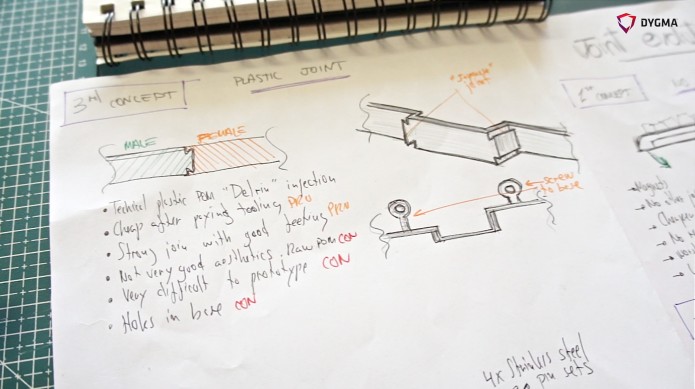 DYGMA
PLASTIC JOINT
3rd CONCEPT
MALE FEMALE
• Technical plastic POM "Delrin" injection
• Cheap after paying tooling PRO
• Strong join with good feeling PRO
• Not very good aesthetics. Raw POM CON
• Very difficult to prototype CON
• Holes in base CON
joint
screw
to base
4x Stainless steel
pin sets
Joint
1st CONCEPT